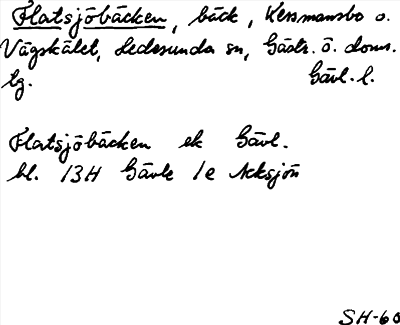 Flatsjöbäcken, bäck, Kessmansbo o.
Vägskälet, Hedesunda sn, Gästr. ö. doms.
lg. Gävl. l.
Flatsjöbäcken ek Gävl.
bl. 13H Gävle 1e Acksjön
SH-60